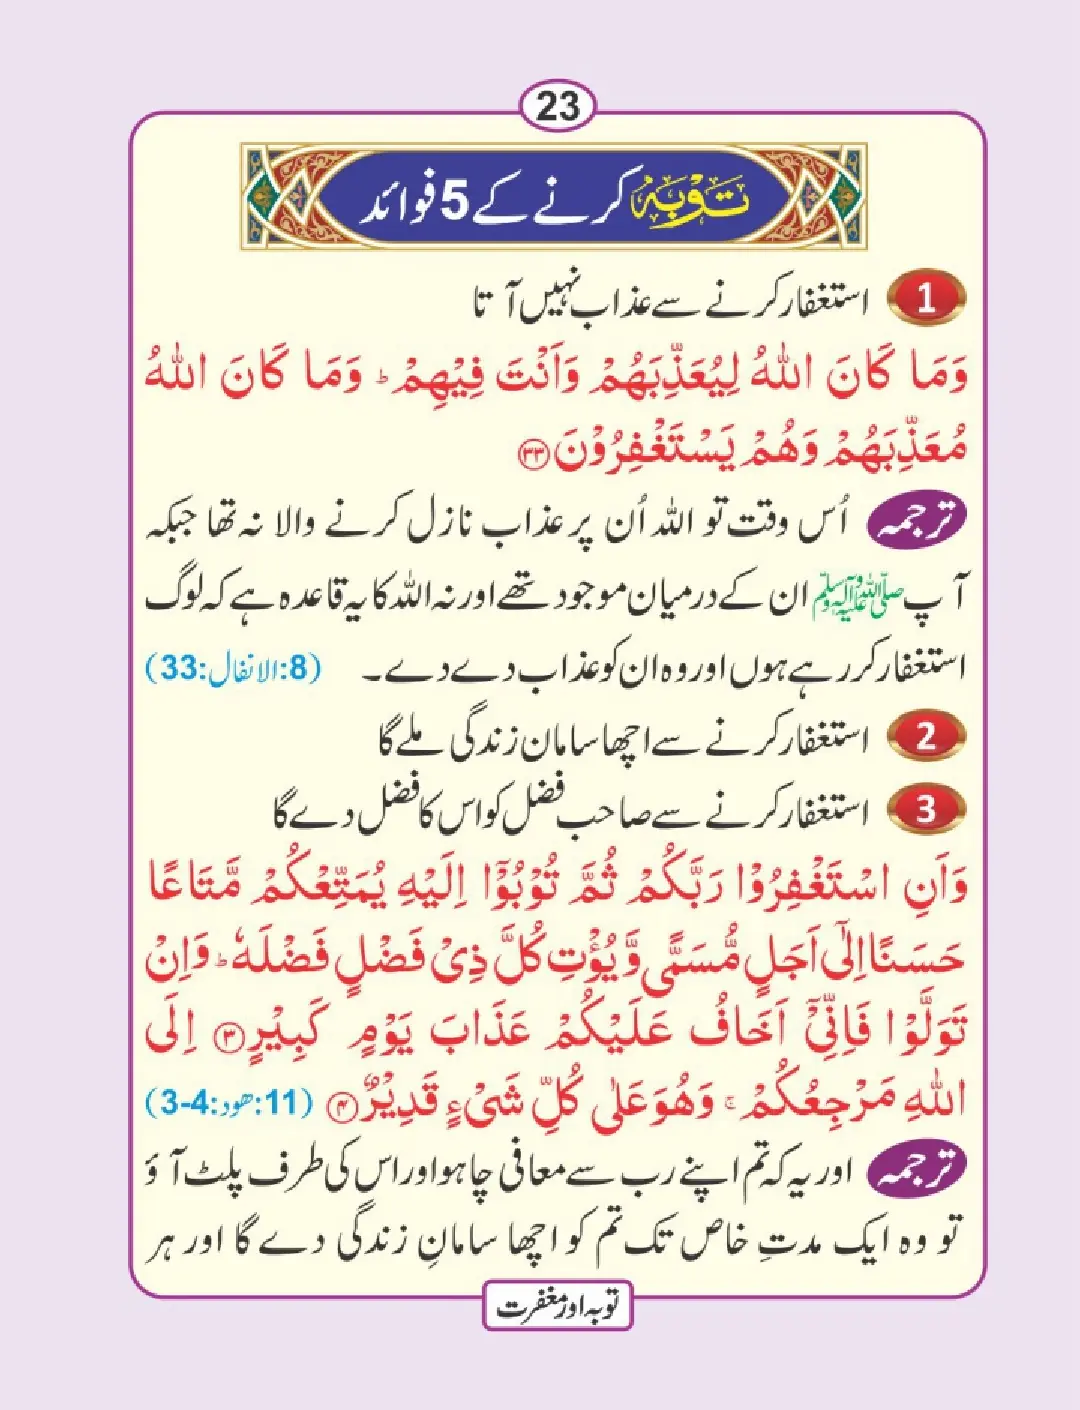 23
توبہ کرنے کے 5 فوائد
1 استغفار کرنے سے عذاب نہیں آتا
وَمَا كَانَ اللّٰهُ لِيُعَذِّبَهُمْ وَاَنْتَ فِيْهِمْ ؕ وَمَا كَانَ اللّٰهُ
مُعَذِّبَهُمْ وَهُمْ يَسْتَغْفِرُوْنَ ۝۳۳
ترجمہ اُس وقت تو اللہ اُن پر عذاب نازل کرنے والا نہ تھا جبکہ
آپ ﷺ ان کے درمیان موجود تھے اور نہ اللہ کا یہ قاعدہ ہے کہ لوگ
استغفار کر رہے ہوں اور وہ ان کو عذاب دے دے۔ (8:الانفال:33)
2 استغفار کرنے سے اچھا سامان زندگی ملے گا
3 استغفار کرنے سے صاحب فضل کو اس کا فضل دے گا
وَاَنِ اسْتَغْفِرُوْا رَبَّكُمْ ثُمَّ تُوْبُوْٓا اِلَيْهِ يُمَتِّعْكُمْ مَّتَاعًا
حَسَنًا اِلٰٓى اَجَلٍ مُّسَمًّى وَّيُؤْتِ كُلَّ ذِىْ فَضْلٍ فَضْلَهٗ ؕ وَاِنْ
تَوَلَّوْا فَاِنِّىْٓ اَخَافُ عَلَيْكُمْ عَذَابَ يَوْمٍ كَبِيْرٍ ۝۳ اِلَى
اللّٰهِ مَرْجِعُكُمْ ۚ وَهُوَ عَلٰى كُلِّ شَىْءٍ قَدِيْرٌ ۝۴ (11:ھود:4-3)
ترجمہ اور یہ کہ تم اپنے رب سے معافی چاہو اور اس کی طرف پلٹ آؤ
تو وہ ایک مدتِ خاص تک تم کو اچھا سامانِ زندگی دے گا اور ہر
توبہ اور مغفرت